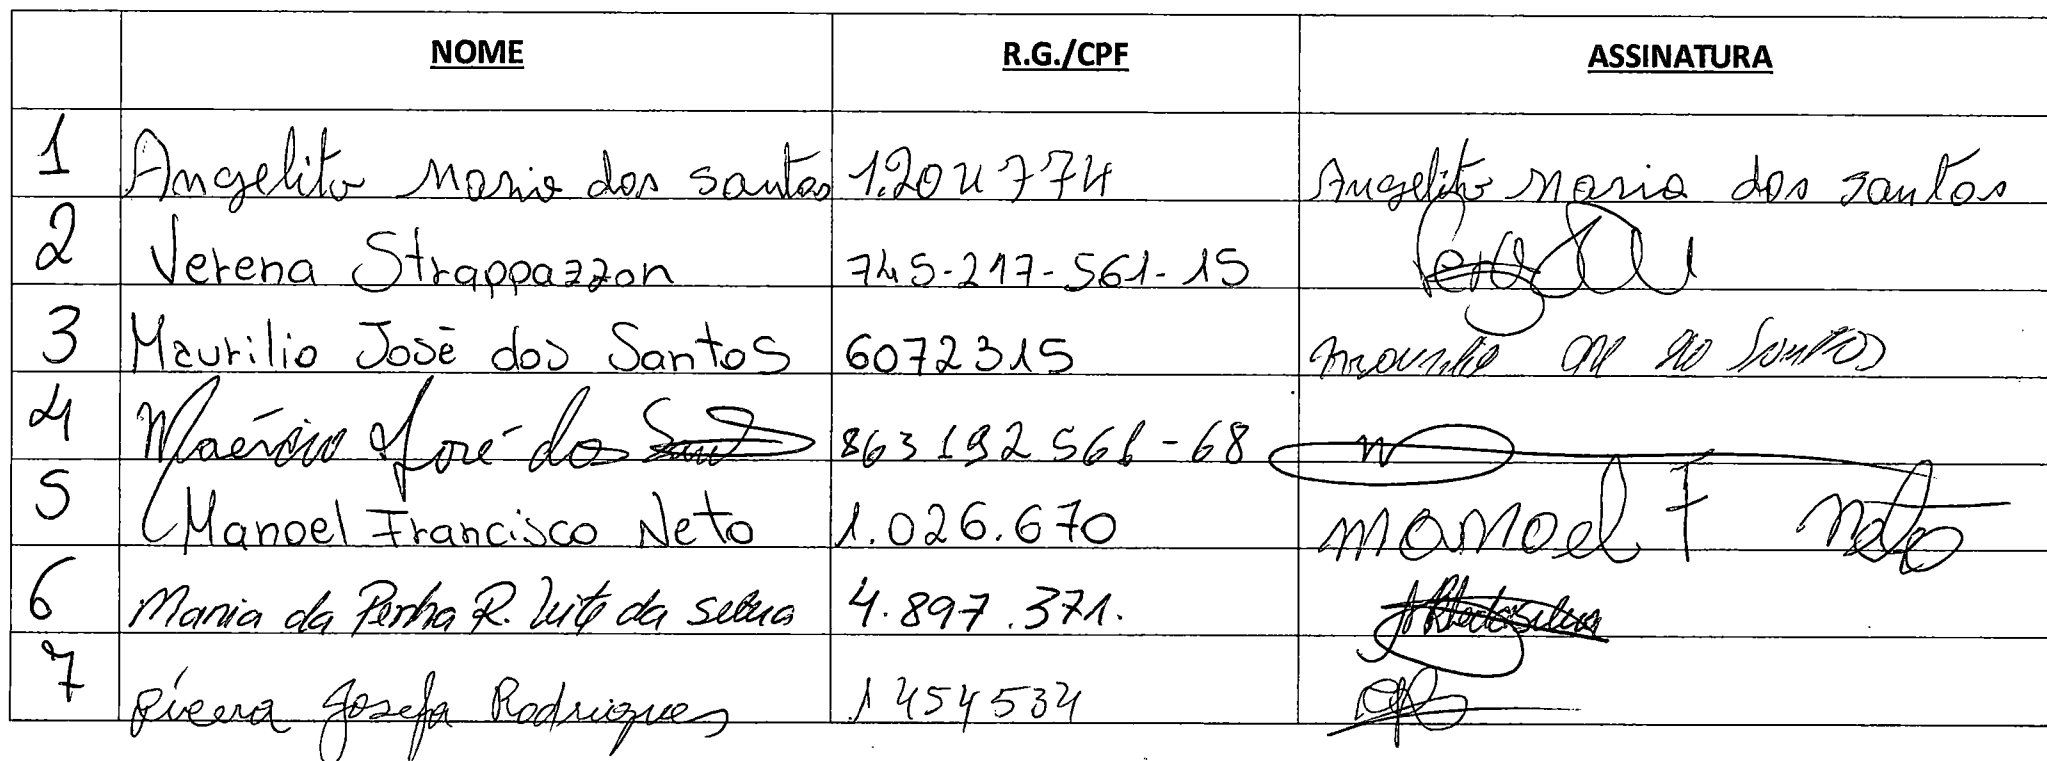 NOME R.G./CPF ASSINATURA
1 Angelito Maria dos santos 1.204774 Angelito Maria dos santos
2 Verena Strappazzon 745-217-561-15
3 Maurilio José dos Santos 6072315 Santos
4 José dos 863192561-68
5 Manoel Francisco Neto 1.026.670 manoel F Neto
6 Maria da Penha R. Leite da Silva 4.897.371.
7 Josefa Rodrigues 1454534